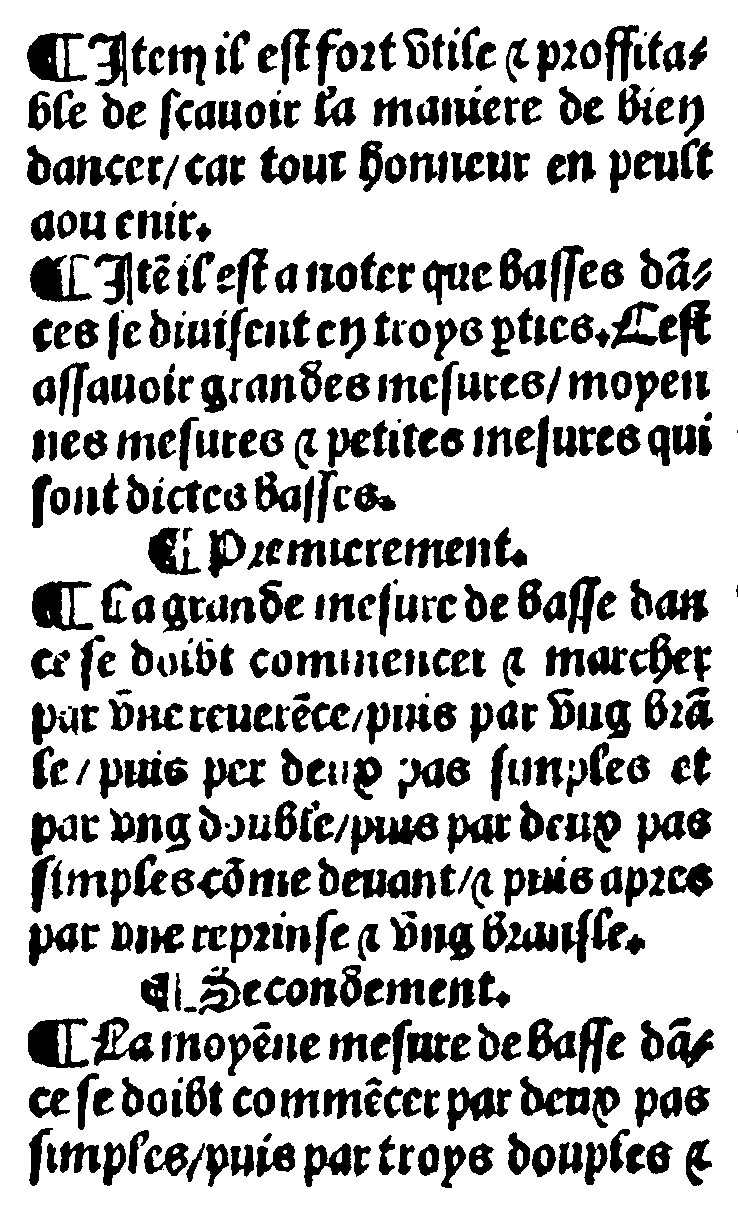 ¶ Item il est fort vtile ⁊ proffita⸗
ble de scauoir la maniere de bien
dancer/car tout honneur en peult
aou enir.
¶ Itē il est a noter que basses dā⸗
ces se diuisent en troys ꝑties. Cest
assauoir grandes mesures/moyen
nes mesures ⁊ petites mesures qui
sont dictes basses.
¶ Premierement.
¶ La grande mesure de basse dan
ce se doibt commencer ⁊ marcher
par vne reuerēce/puis par vng brā
le/puis per deux pas simples et
par vng double/puis par deux pas
simples cōme deuant/⁊ puis apres
par vne reprinse ⁊ vng bransle.
¶ Secondement.
¶ La moyēne mesure de basse dā⸗
ce se doibt commēcer par deux pas
simples/puis par troys douples ⁊